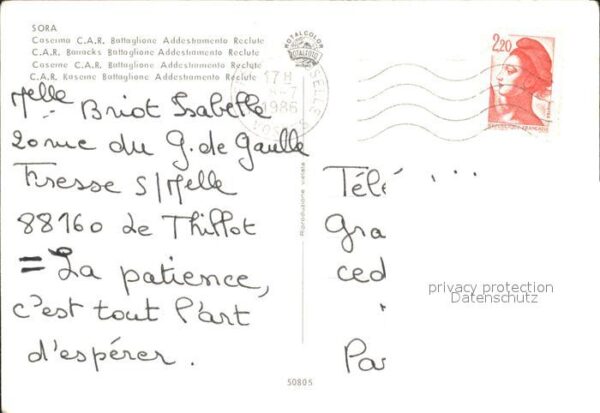 SORA
Caserma C.A.R. Battaglione Addestramento Reclute
C.A.R. Barracks Battaglione Addestramento Reclute
Caserne C.A.R. Battaglione Addestramento Reclute
C.A.R. Kaserne Battaglione Addestramento Reclute
ROTALCOLOR
ROTALFOTO
17 H
1986
VOSGES
2,20
REPUBLIQUE FRANÇAISE
Melle Briot Isabelle
20 rue du G. de Gaulle
Fresse S/Melle
88160 Le Thillot
= La patience,
c'est tout l'art
d'espérer.
Riproduzione vietata
Télé
Gra
ced
Pa
privacy protection
Datenschutz
50805